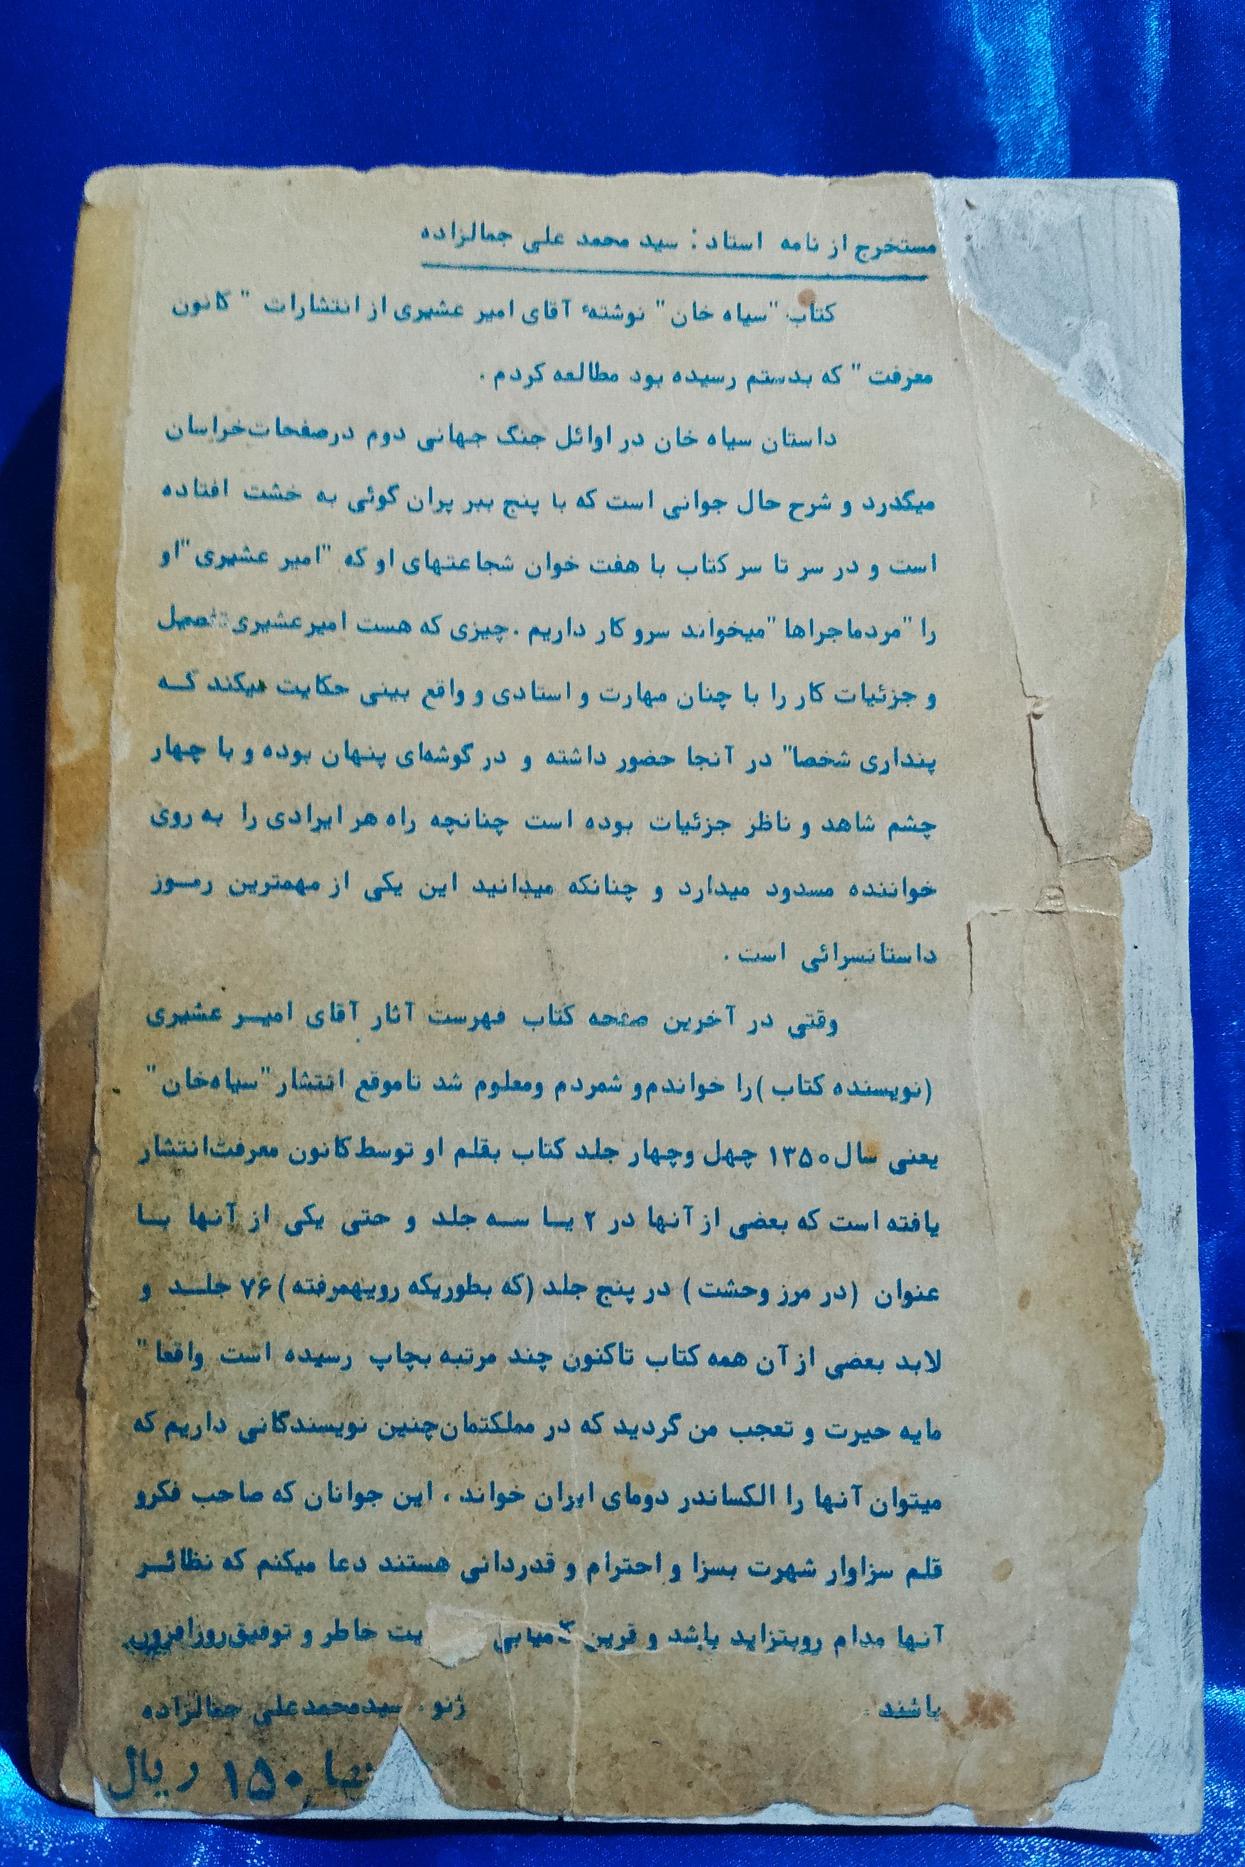 مستخرج از نامه استاد : سید محمد علی جمالزاده
کتاب "سیاه خان" نوشتهٔ آقای امیر عشیری از انتشارات " کانون
معرفت " که بدستم رسیده بود مطالعه کردم .
داستان سیاه خان در اوائل جنگ جهانی دوم درصفحات‌خراسان
میگذرد و شرح حال جوانی است که با پنج ببر پران گوئی به خشت افتاده
است و در سر تا سر کتاب با هفت خوان شجاعتهای او که "امیر عشیری"او
را "مردماجراها "میخواند سرو کار داریم .چیزی که هست امیرعشیری تفصیل
و جزئیات کار را با چنان مهارت و استادی و واقع بینی حکایت میکند کـه
پنداری شخصا" در آنجا حضور داشته و در گوشه‌ای پنهان بوده و با چهار
چشم شاهد و ناظر جزئیات بوده است چنانچه راه هر ایرادی را به روی
خواننده مسدود میدارد و چنانکه میدانید این یکی از مهمترین رمـوز
داستانسرائی است .
وقتی در آخرین صفحه کتاب فهرست آثار آقای امیـر عشیری
(نویسنده کتاب )را خواندم‌و شمردم ومعلوم شد تاموقع انتشار "سیاه‌خان"
یعنی سال۱۳۵۰ چهل وچهار جلد کتاب بقلم او توسط‌کانون معرفت‌انتشار
یافته است که بعضی از آنها در ۲ یـا سـه جلد و حتی یکی از آنها بـا
عنوان (در مرز وحشت ) در پنج جلد (که بطوریکه رویهمرفته) ۷۶ جلـد و
لابد بعضی از آن همه کتاب تاکنون چند مرتبه بچاپ رسیده است واقعا"
مایه حیرت و تعجب من گردید که در مملکتمان‌چنین نویسندگانی داریم که
میتوان آنها را الکساندر دومای ایران خواند ، این جوانان که صاحب فکرو
قلم سزاوار شهرت بسزا و احترام و قدردانی هستند دعا میکنم که نظائـر
آنها مدام روبتزاید باشد و قرین کامیابی یت خاطر و توفیق‌روزافزون
باشند . ژنو . سیدمحمدعلی جمالزاده
۱۵۰ ریال